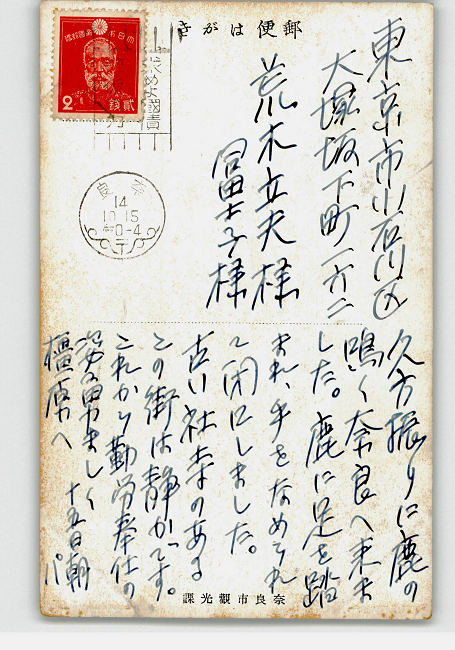 郵便はがき
大日本帝国郵便
貳銭
2
求めよ國債
奈良
14
10.15
后0-4
東京市小石川区
大塚坂下町一六二
荒木立夫様
冨士子様
久方振りに鹿の
鳴く奈良へ来ま
した。鹿に足を踏
まれ、手をなめられ
て閉口しました。
古い社寺のある
この街は静かです。
これから勤労奉仕の
姿勇ましく
橿原へ 十五日朝
奈良市觀光課